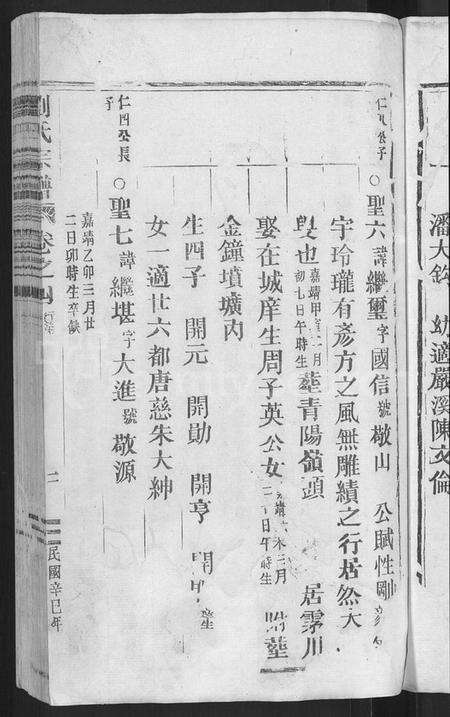 潘大欽 幼適嚴溪陳文倫
仁 公子
○聖六諱繼璽字國信號敬山 公賦性剛
宇玲瓏有彥方之風無雕績之行居然大
也嘉靖甲寅 月
初七日午時生
塟青陽嶺頭 居霞川
娶在城庠生周子英公女 未三月
日午時生
附塟
金鐘墳壙內
生四子 開元 開勛 開亨 開 塟
女一適廿六都唐慈朱大紳
仁四公長
子
○聖七諱繼堪字大進號敬源
嘉靖乙卯三月廿
二日卯時生卒缺
劉氏宗譜 卷之四
民國辛巳年